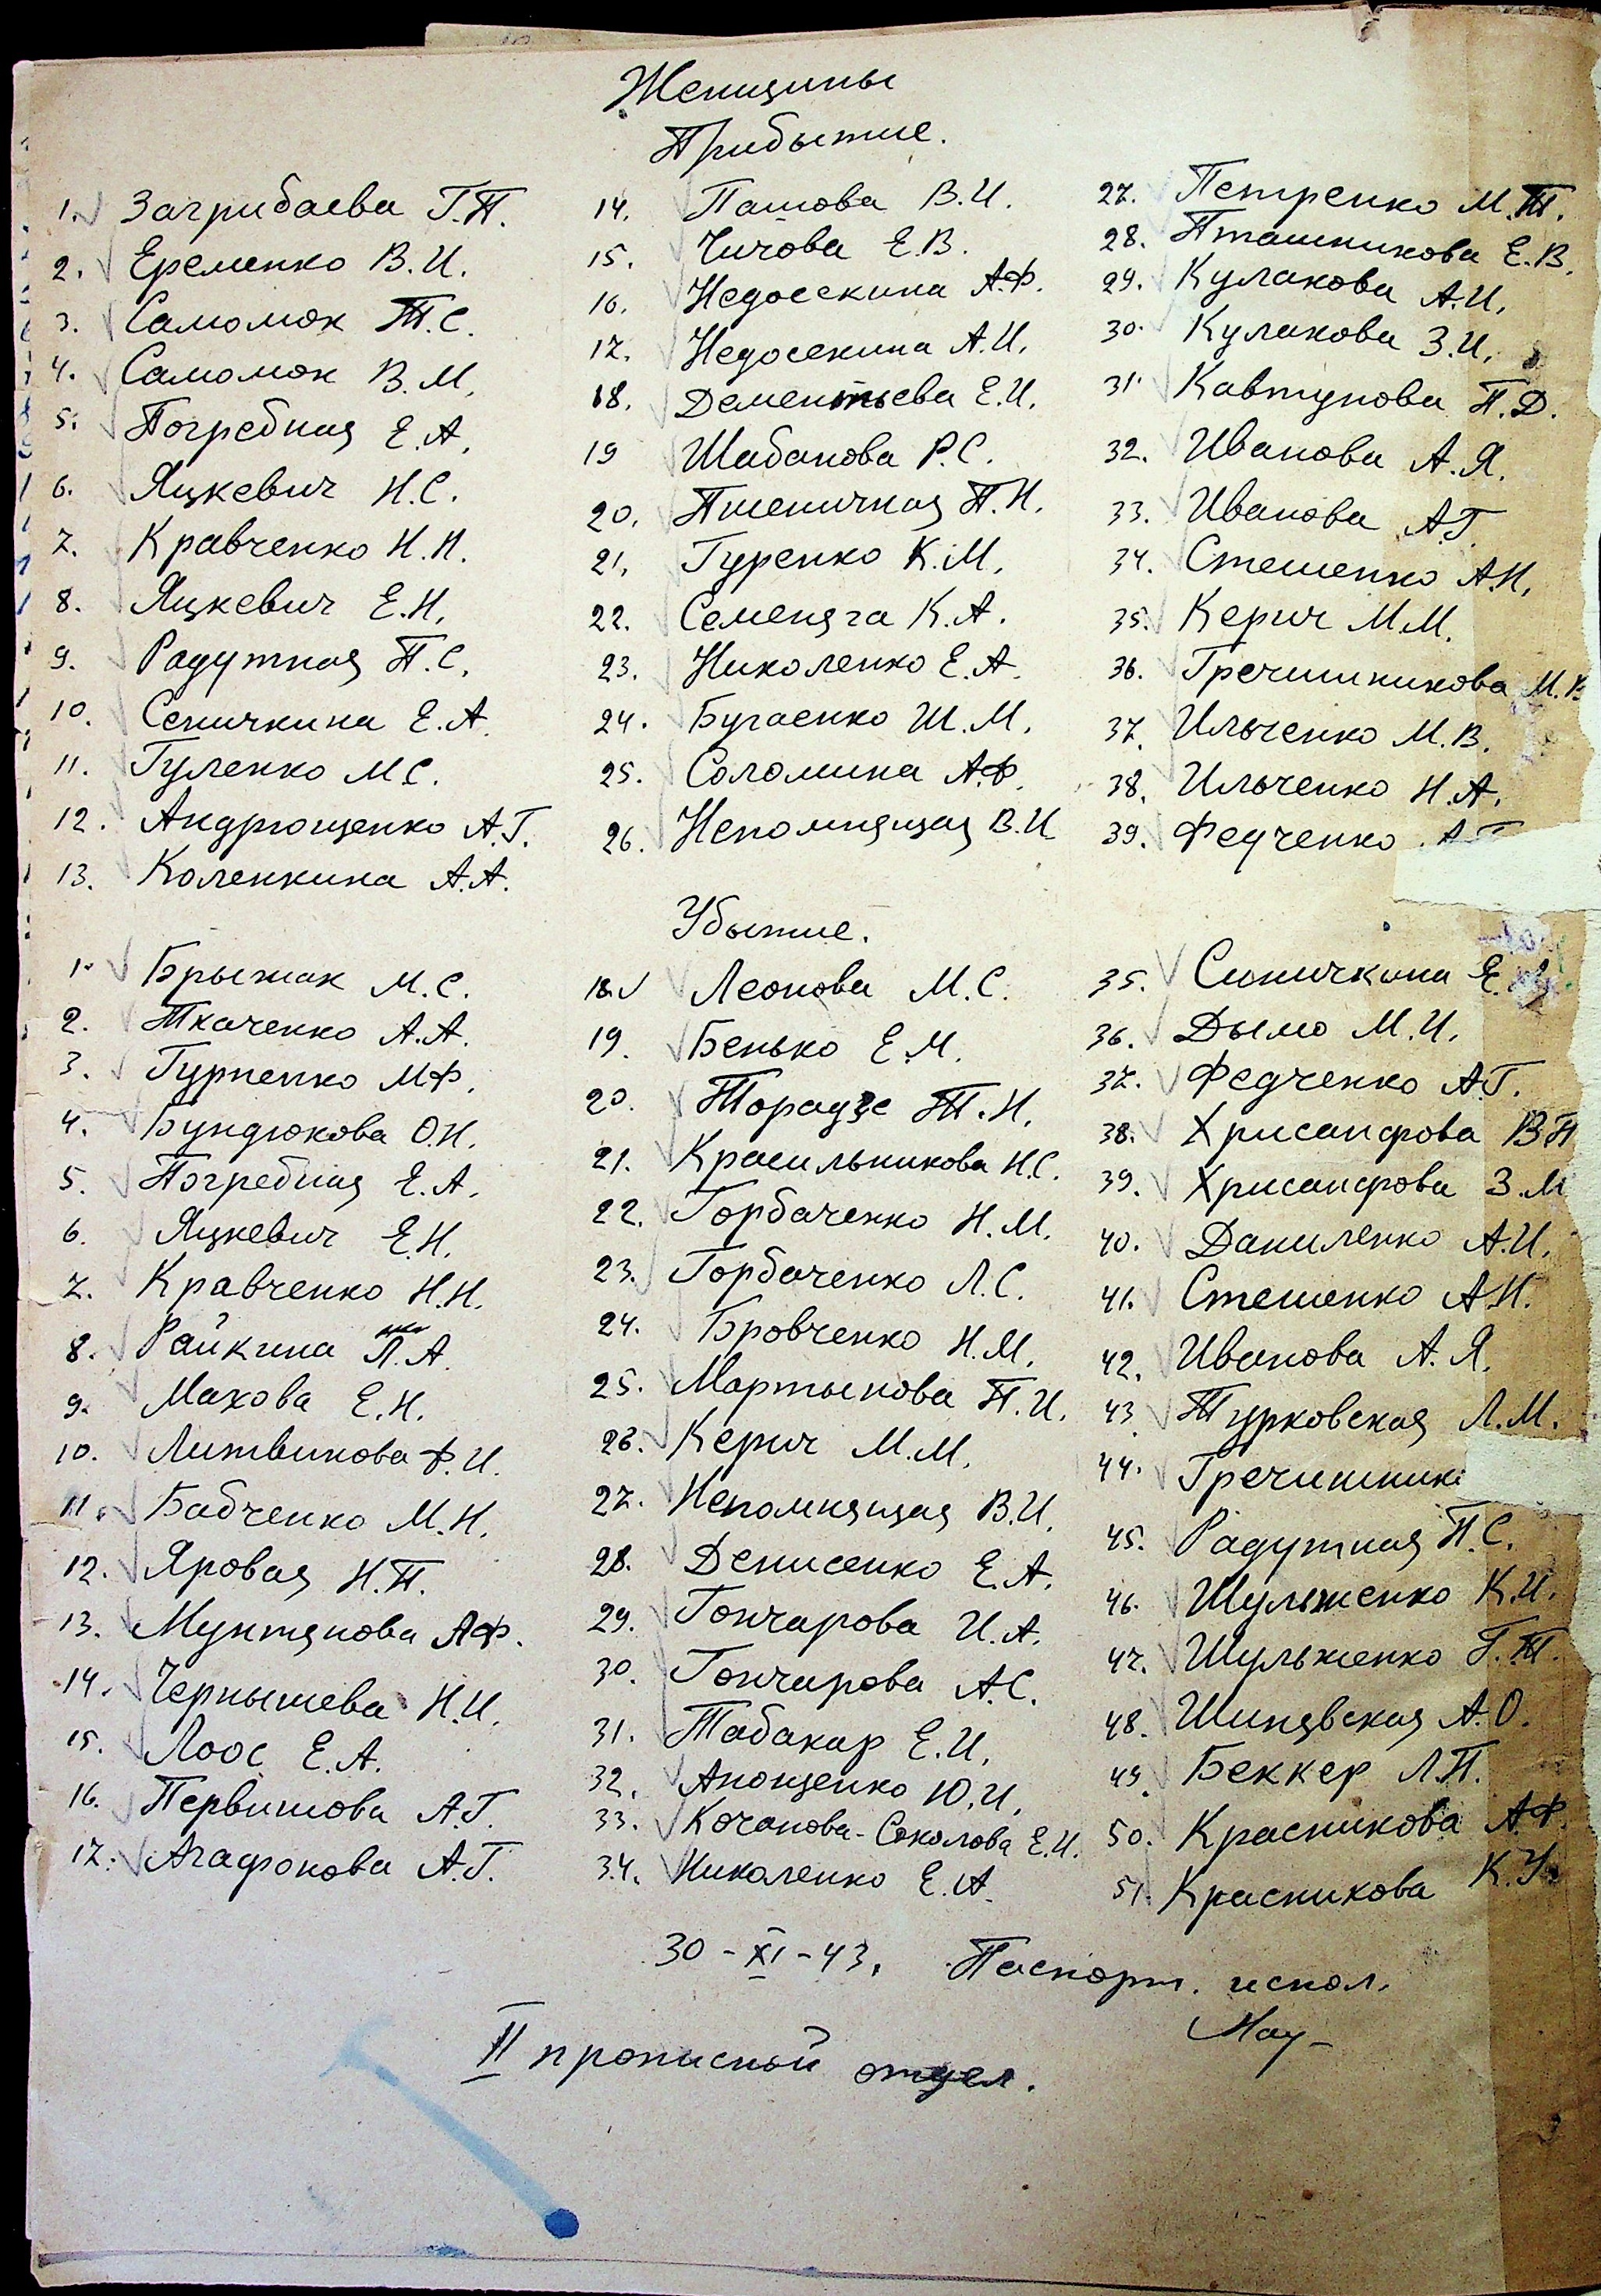 Женщины
Прибытие.
1. Загрибаева Г.П.
2. Еременко В.И.
3. Самомок Т.С.
4. Самомок В.М.
5. Погребная Е.А.
6. Яцкевич Н.С.
7. Кравченко Н.Н.
8. Яцкевич Е.Н.
9. Радутная П.С.
10. Сеничкина Е.А.
11. Гуленко М.С.
12. Андрющенко А.Г.
13. Коленкина А.А.
14. Патова В.И.
15. Чичова Е.В.
16. Недосекина А.Ф.
17. Недосекина А.И.
18. Дементьева Е.И.
19 Шабанова Р.С.
20. Пшеничная П.Н.
21. Гуренко К.М.
22. Семеняга К.А.
23. Николенко Е.А.
24. Бугаенко Ш.М.
25. Соломина А.Ф.
26. Непомнящая В.И
27. Петренко М.Т.
28. Пташникова Е.В.
29. Кулакова А.И.
30. Кулакова З.И.
31. Кавтунова П.Д.
32. Иванова А.Я.
33. Иванова А.Г.
34. Стешенко А.Н.
35. Керич М.М.
36. Гречишникова М.В
37. Ильченко М.В.
38. Ильченко Н.А.
39. Федченко А.Г
Убытие.
1. Брыжак М.С.
2. Ткаченко А.А.
3. Гурненко М.Ф.
4. Бундюкова О.Н.
5. Погребная Е.А.
6. Яцкевич Е.Н.
7. Кравченко Н.Н.
8. Райкина П.А.
9. Махова Е.Н.
10. Литвинова Ф.И.
11. Бабченко М.Н.
12. Яровая Н.П.
13. Мунтянова А.Ф.
14. Чернышева Н.И.
15. Лоос Е.А.
16. Первишова А.Г.
17. Агафонова А.Г.
18. Леонова М.С.
19. Бенько Е.М.
20. Торадзе Т.Н.
21. Красильникова Н.С.
22. Горбаченко Н.М.
23. Горбаченко Л.С.
24. Бровченко Н.М.
25. Мартынова П.И.
26. Керич М.М.
27. Непомнящая В.И.
28. Денисенко Е.А.
29. Гончарова И.А.
30. Гончарова А.С.
31. Табакар Е.И.
32. Анощенко Ю.И.
33. Кочанова-Соколова Е.И.
34. Николенко Е.А.
35. Синичкина Е.
36. Дымо М.И.
37. Федченко А.Г.
38. Хрисанфова В.П
39. Хрисанфова З.М
40. Даниленко А.И.
41. Стешенко А.Н.
42. Иванова А.Я.
43 Турковская Л.М.
44. Гречишник
45. Радутная П.С.
46. Шульженко К.И.
47. Шульженко Г.Т.
48. Шинявская А.О.
49. Беккер Л.П.
50. Красникова А.Ф.
51. Красникова К.У.
30-XI-43. Паспорт. испол.
II прописной отдел.